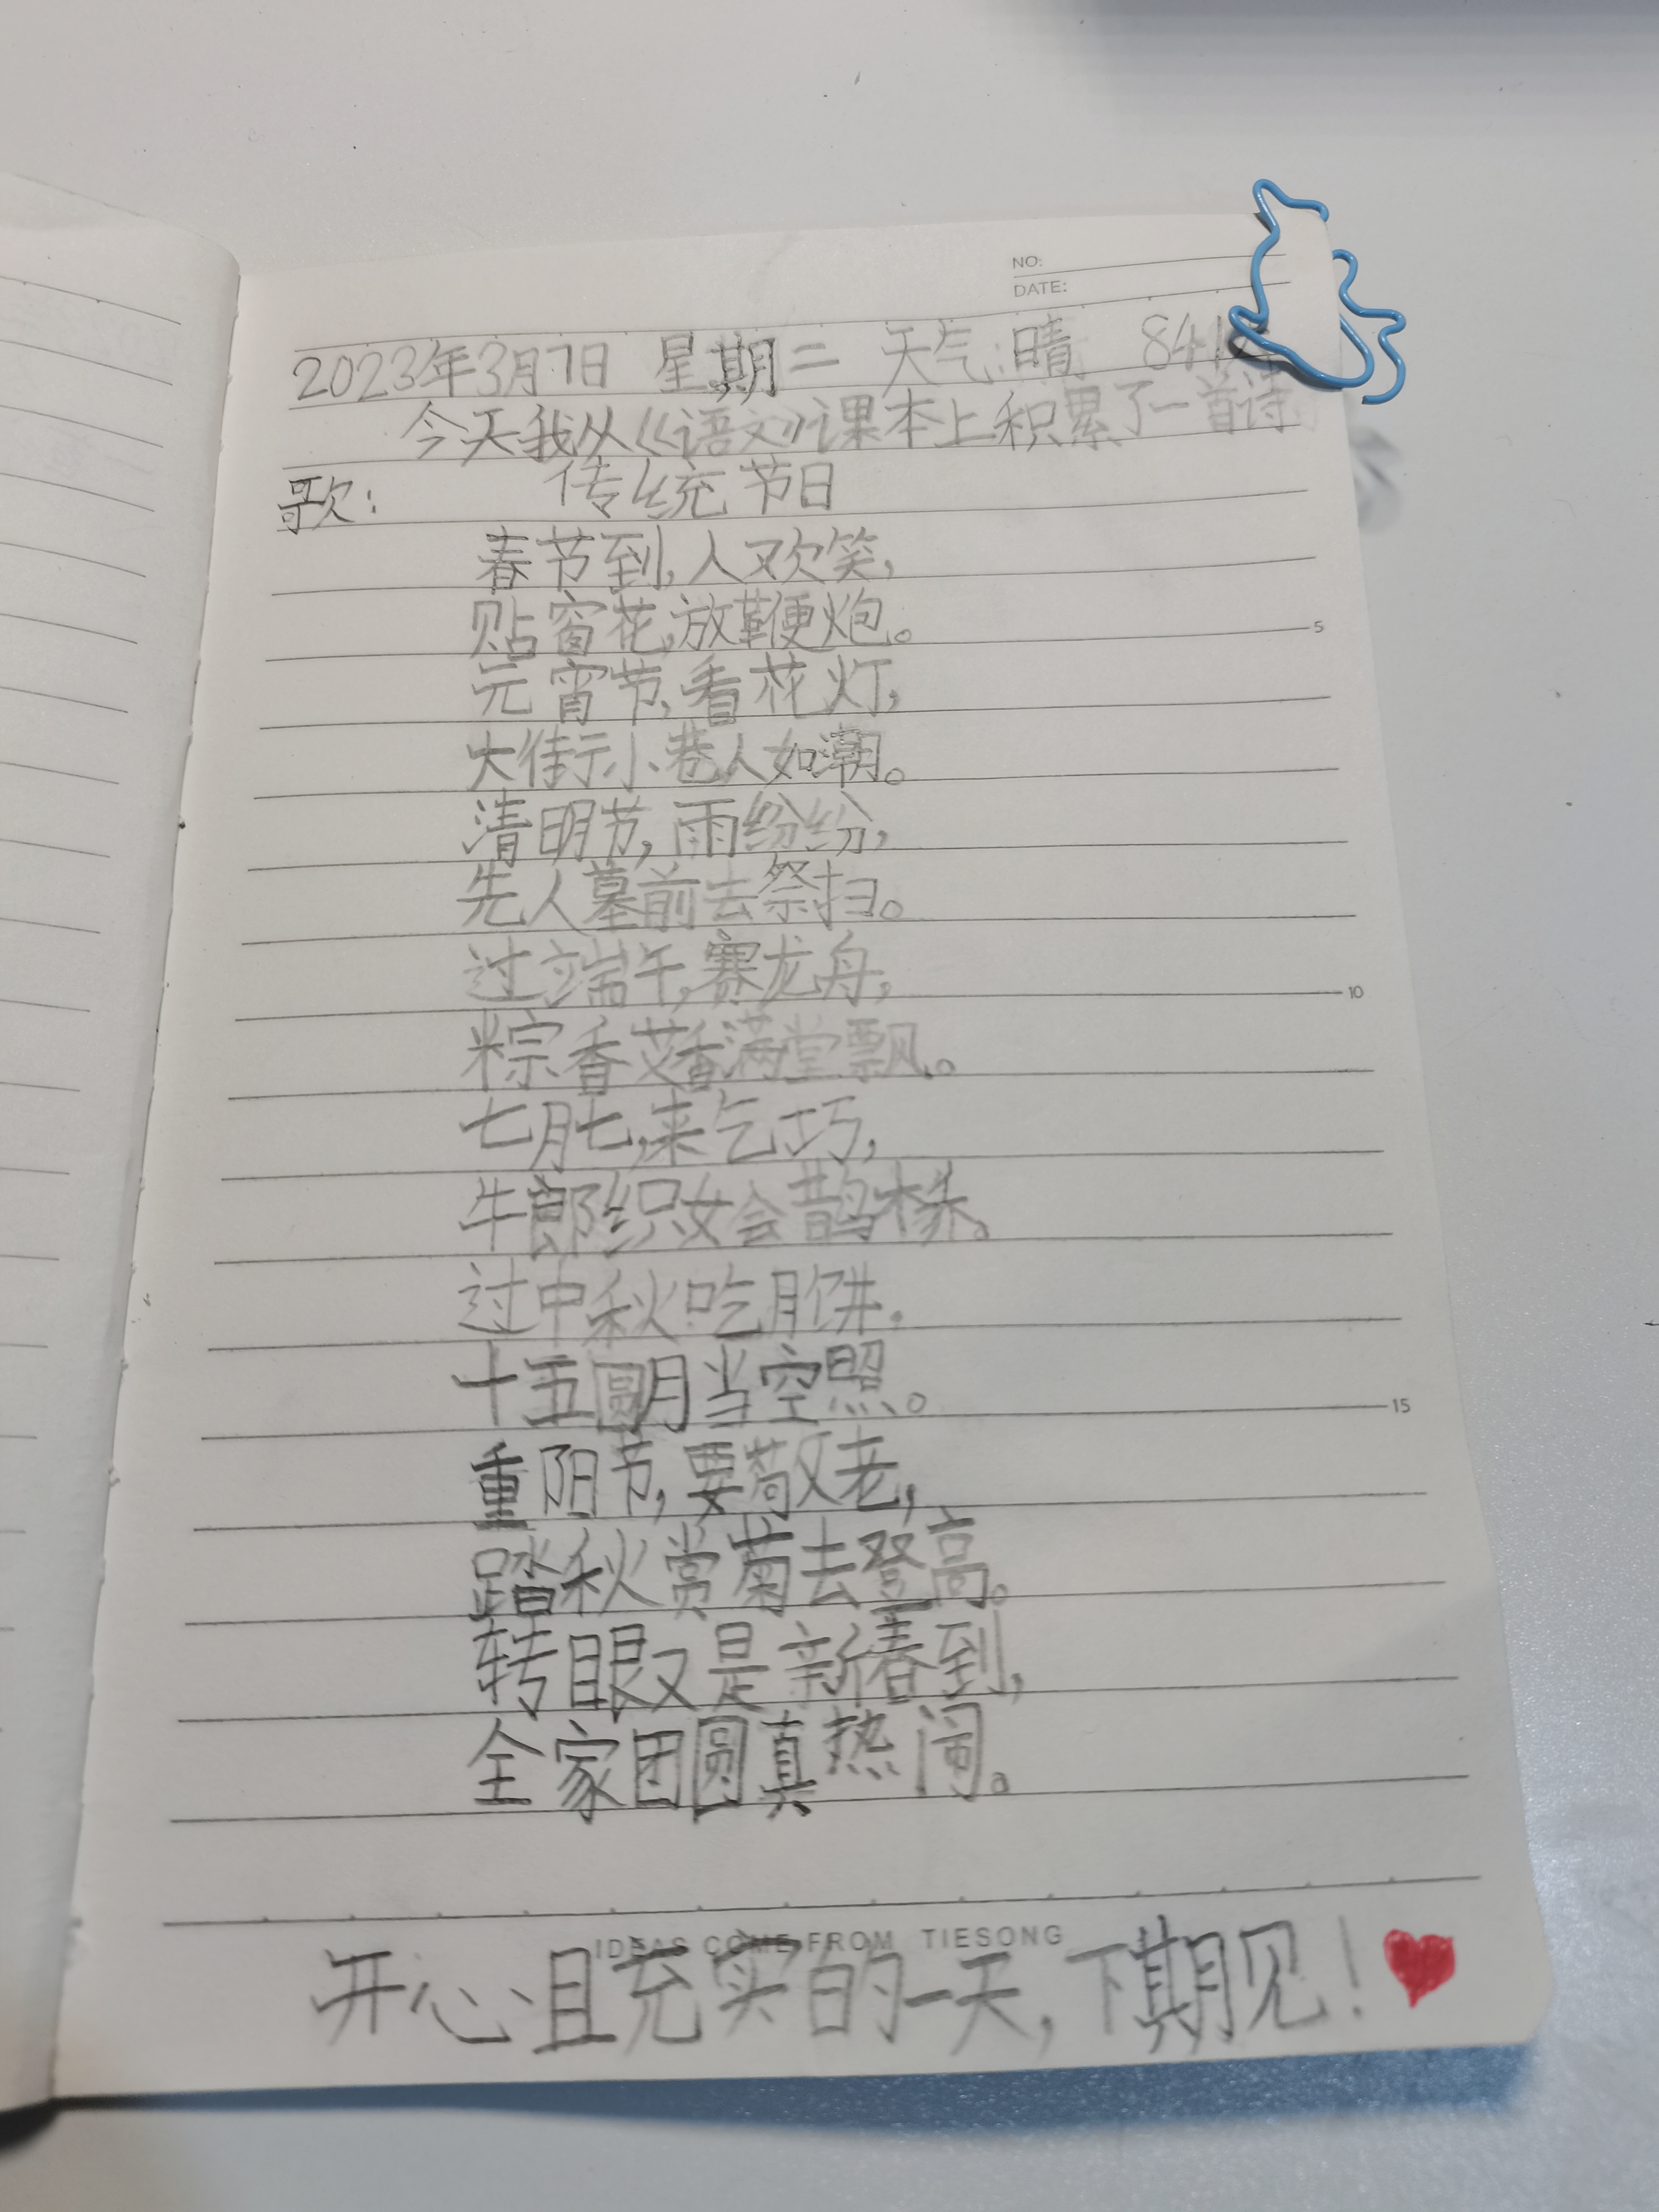 NO:
DATE:
2023年3月7日 星期二 天气:晴 841
今天我从《语文》课本上积累了一首诗
歌: 传统节日
春节到,人欢笑,
贴窗花,放鞭炮。
元宵节,看花灯,
大街小巷人如潮。
清明节,雨纷纷,
先人墓前去祭扫。
5
过端午,赛龙舟,
粽香艾香满堂飘。
10
七月七,来乞巧,
牛郎织女会鹊桥。
过中秋,吃月饼,
十五圆月当空照。
15
重阳节,要敬老,
踏秋赏菊去登高。
转眼又是新春到,
全家团圆真热闹。
IDEAS COME FROM TIESONG
开心且充实的一天,下期见!